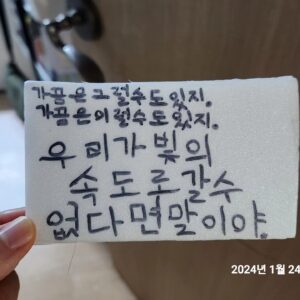 가끔은 그럴수도 있지.
가끔은 이럴수도 있지.
우리가 빛의
속도로 갈 수
없다면 말이야.
2024년 1월 24